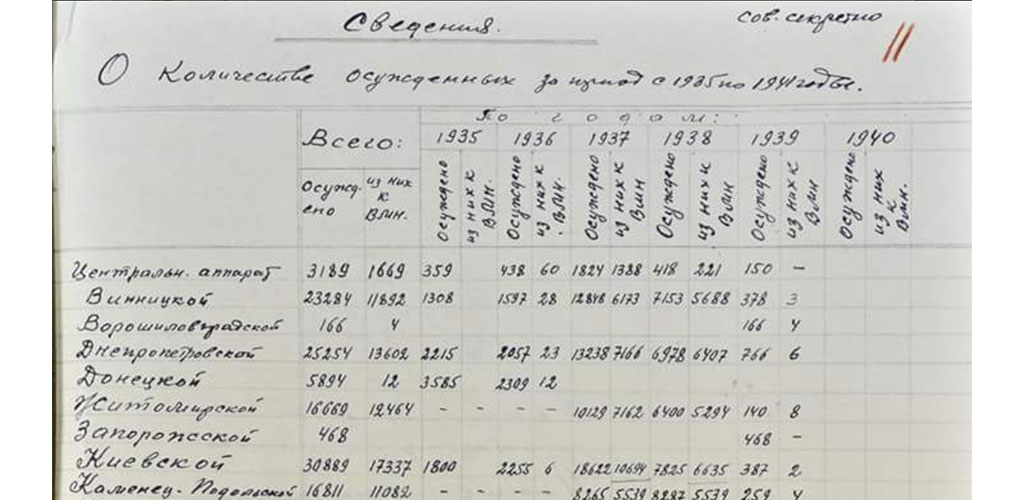 Сведения.
сов. секретно
11
О количестве осужденных за период с 1935 по 1941 годы.
По годам:
Всего: 1935 1936 1937 1938 1939 1940
Осуждено из них к ВМН. Осуждено из них к ВМН. Осуждено из них к ВМН. Осуждено из них к ВМН Осуждено из них к ВМН Осуждено из них к ВМН Осуждено из них к ВМН.
Центральн. аппарат 3189 1669 359 438 60 1824 1388 418 221 150 –
Винницкой 23284 11892 1308 1597 28 12848 6173 7153 5688 378 3
Ворошиловградской 166 4 166 4
Днепропетровской 25254 13602 2215 2057 23 13238 7166 6978 6407 766 6
Донецкой 5894 12 3585 2309 12
Житомирской 16669 12464 – – – – 10129 7162 6400 5294 140 8
Запорожсской 468 468 –
Киевской 30889 17337 1800 2255 6 18622 10694 7825 6635 387 2
Каменец-Подольской 16811 11082 – – – – 8265 5539 8287 5539 259 4